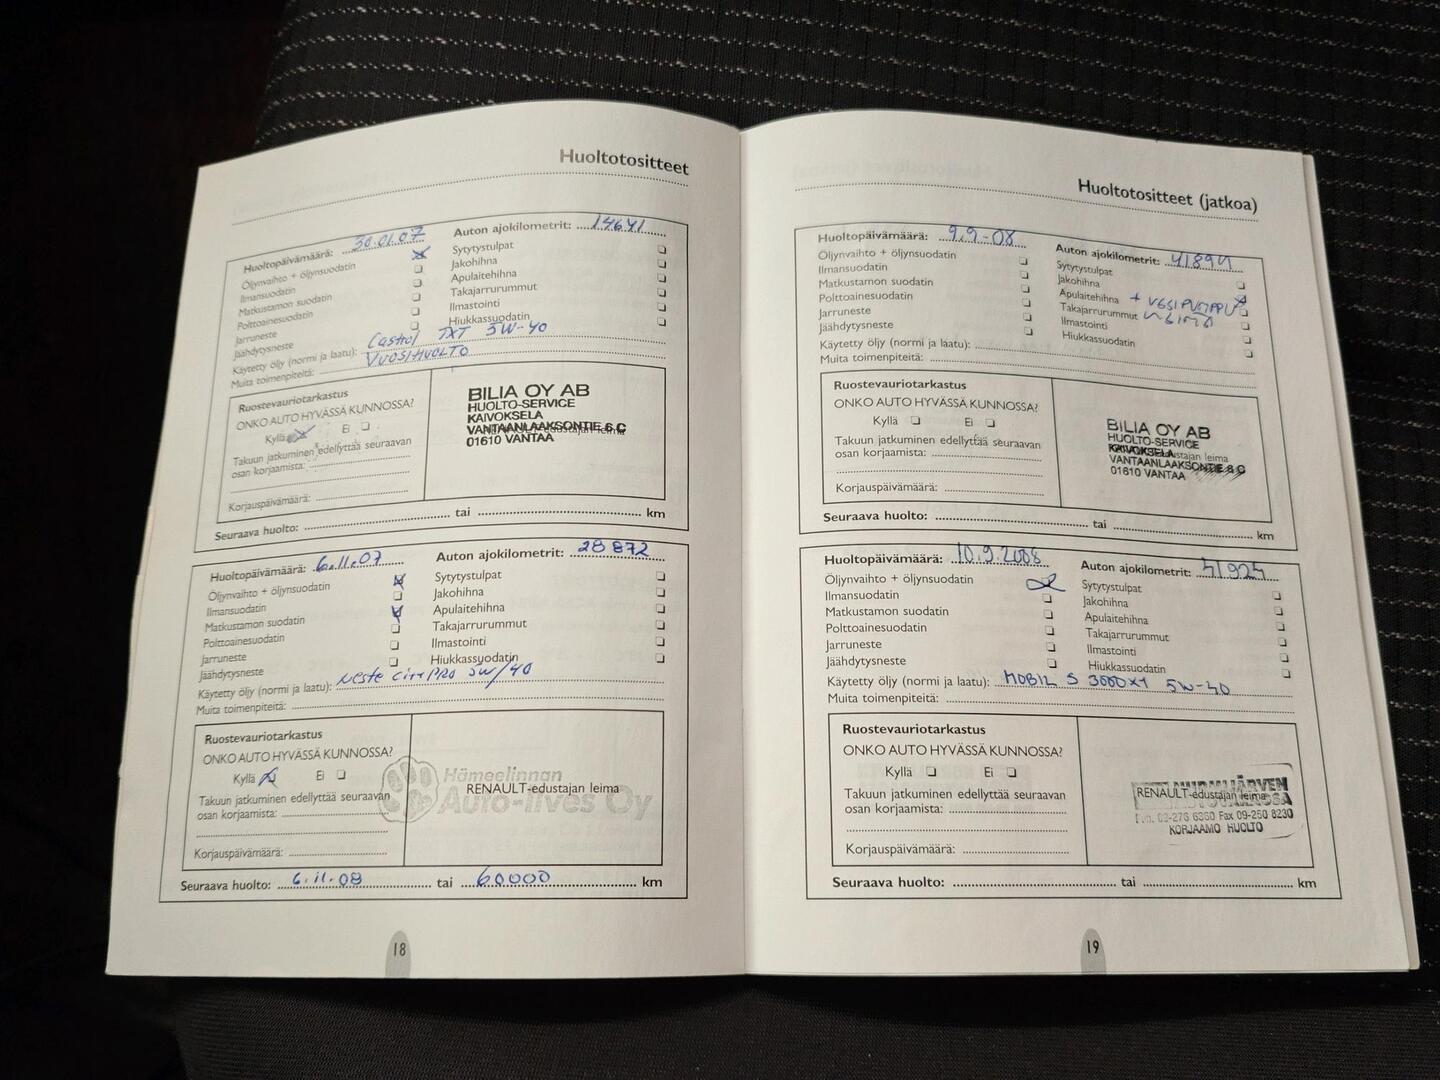 Huoltotositteet
Huoltopäivämäärä: 30.01.07 Auton ajokilometrit: 14641
Öljynvaihto + öljynsuodatin Sytytystulpat
Ilmansuodatin Jakohihna
Matkustamon suodatin Apulaitehihna
Polttoainesuodatin Takajarrurummut
Jarruneste Ilmastointi
Jäähdytysneste Hiukkassuodatin
Käytetty öljy (normi ja laatu): Castrol TXT 5W-40
Muita toimenpiteitä: VUOSIHUOLTO
Ruostevauriotarkastus
ONKO AUTO HYVÄSSÄ KUNNOSSA?
Kyllä Ei
Takuun jatkuminen edellyttää seuraavan
osan korjaamista:
Korjauspäivämäärä:
BILIA OY AB
HUOLTO-SERVICE
KAIVOKSELA
VANTAANLAAKSONTIE 6 C
01610 VANTAA
Seuraava huolto: tai km
Huoltopäivämäärä: 6.11.07 Auton ajokilometrit: 28872
Öljynvaihto + öljynsuodatin Sytytystulpat
Ilmansuodatin Jakohihna
Matkustamon suodatin Apulaitehihna
Polttoainesuodatin Takajarrurummut
Jarruneste Ilmastointi
Jäähdytysneste Hiukkassuodatin
Käytetty öljy (normi ja laatu): Neste City PRO 5W/40
Muita toimenpiteitä:
Ruostevauriotarkastus
ONKO AUTO HYVÄSSÄ KUNNOSSA?
Kyllä Ei
Takuun jatkuminen edellyttää seuraavan
osan korjaamista:
Korjauspäivämäärä:
Hämeelinnan
RENAULT-edustajan leima
Auto-Ilves Oy
Seuraava huolto: 6.11.08 tai 60000 km
18
Huoltotositteet (jatkoa)
Huoltopäivämäärä: 9.9-08 Auton ajokilometrit: 41894
Öljynvaihto + öljynsuodatin Sytytystulpat
Ilmansuodatin Jakohihna
Matkustamon suodatin Apulaitehihna + VESIPUMPPU
Polttoainesuodatin Takajarrurummut
Jarruneste Ilmastointi
Jäähdytysneste Hiukkassuodatin
Käytetty öljy (normi ja laatu):
Muita toimenpiteitä:
Ruostevauriotarkastus
ONKO AUTO HYVÄSSÄ KUNNOSSA?
Kyllä Ei
Takuun jatkuminen edellyttää seuraavan
osan korjaamista:
Korjauspäivämäärä:
BILIA OY AB
HUOLTO-SERVICE
KAIVOKSELA
VANTAANLAAKSONTIE 6 C
01610 VANTAA
Seuraava huolto: tai km
Huoltopäivämäärä: 10.9.2008 Auton ajokilometrit: 41924
Öljynvaihto + öljynsuodatin Sytytystulpat
Ilmansuodatin Jakohihna
Matkustamon suodatin Apulaitehihna
Polttoainesuodatin Takajarrurummut
Jarruneste Ilmastointi
Jäähdytysneste Hiukkassuodatin
Käytetty öljy (normi ja laatu): MOBIL S 3000X1 5W-40
Muita toimenpiteitä:
Ruostevauriotarkastus
ONKO AUTO HYVÄSSÄ KUNNOSSA?
Kyllä Ei
Takuun jatkuminen edellyttää seuraavan
osan korjaamista:
Korjauspäivämäärä:
RENAULT-edustajan leima
Fax 09-250 8230
KORJAAMO HUOLTO
Seuraava huolto: tai km
19